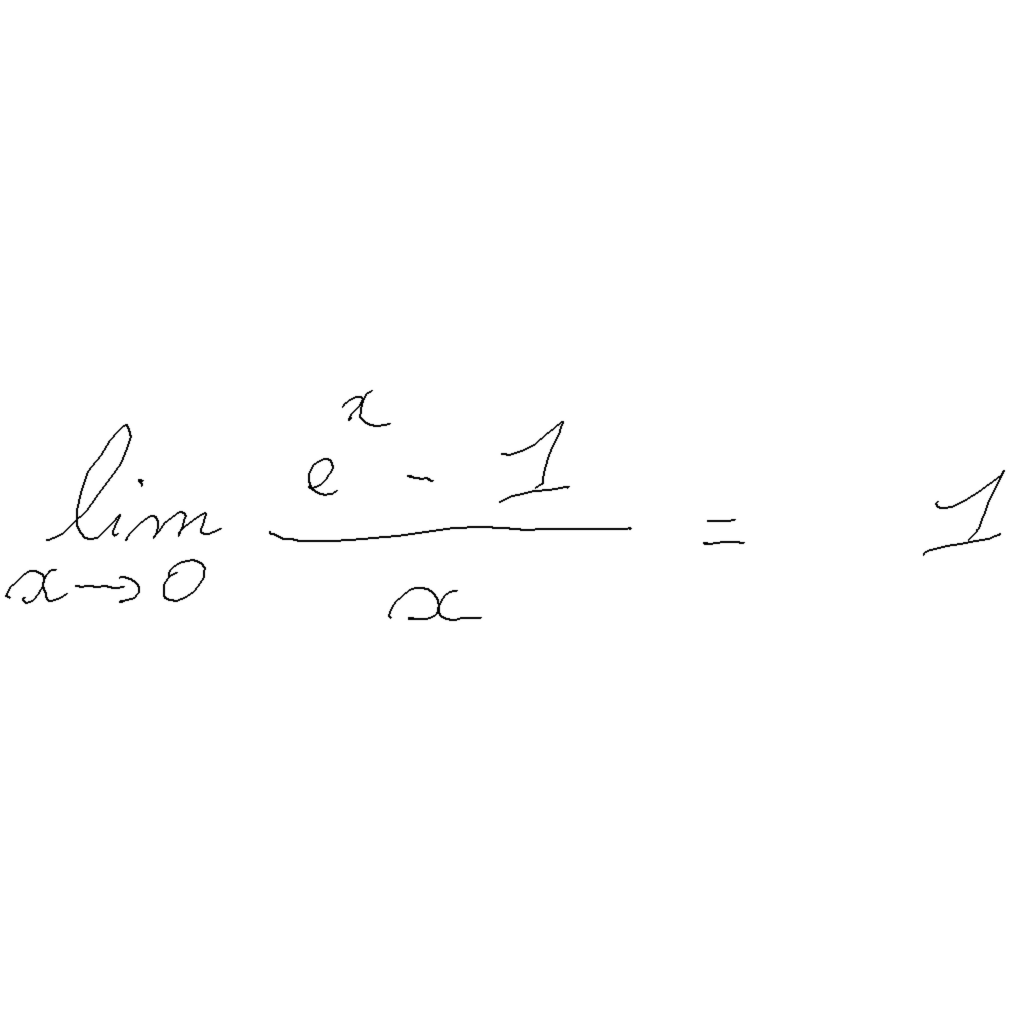 \lim_{x \to 0} \frac{e^x - 1}{x} = 1